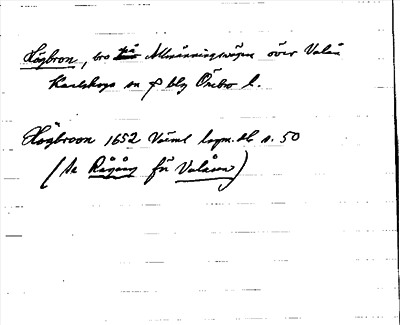 Högbron, bro på Allmänningsvägen över Valån
Karlskoga sn o blg Örebro l.
Högbroon 1652 Värml. lagm. db s. 50
(se Rågång för Valåsen)